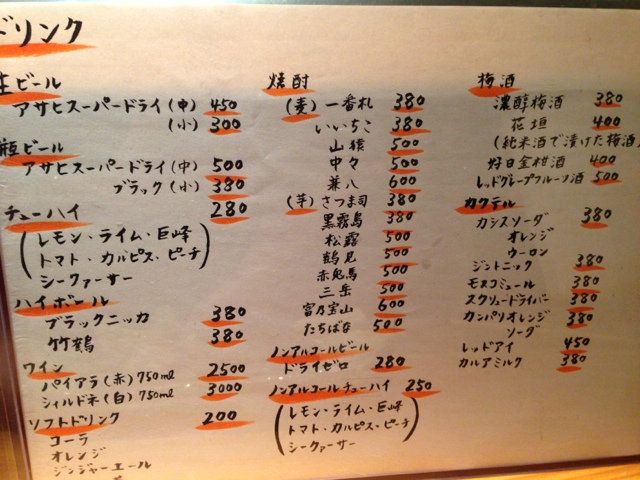 ドリンク
生ビール
アサヒスーパードライ(中) 450
(小) 300
瓶ビール
アサヒスーパードライ(中) 500
ブラック(小) 380
チューハイ 280
(レモン・ライム・巨峰
トマト・カルピス・ピーチ
シークァーサー)
ハイボール
ブラックニッカ 380
竹鶴 380
ワイン
パイアラ(赤)750ml 2500
シィルドネ(白)750ml 3000
ソフトドリンク 200
コーラ
オレンジ
ジンジャーエール
焼酎
(麦) 一番札 380
いいちこ 380
山猿 500
中々 500
兼八 600
(芋) さつま司 380
黒霧島 380
松露 500
鶴見 500
赤兎馬 500
三岳 500
富乃宝山 600
たちばな 500
ノンアルコールビール
ドライゼロ 280
ノンアルコールチューハイ 250
(レモン・ライム・巨峰
トマト・カルピス・ピーチ
シークァーサー)
梅酒
濃醇梅酒 380
花垣 400
(純米酒で漬けた梅酒)
好日金柑酒 400
レッドグレープフルーツ酒 500
カクテル
カシスソーダ 380
オレンジ
ウーロン
ジントニック 380
モスコミュール 380
スクリュードライバー 380
カンパリオレンジ 380
ソーダ
レッドアイ 450
カルアミルク 380